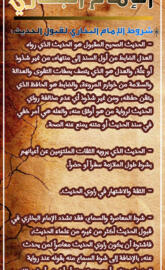 الإمام البخاري
شروط الإمام البخاري لقبول الحديث:
- الحديث الصحيح المقبول هو الحديث الذي رواه
العدل الضابط من أول السند إلى منتهاه، من غير شذوذ
أو علّة، والعدل هو الذي يتصف بصفات التقوى والعدالة
والسلامة من خوارم المروءة، والضابط هو الحافظ الذي
يتقن حفظه، ومن غير شذوذ أي عدم مخالفة راوي
الحديث لرواية من هو أوثق منه، والعلة هي أمر خفي
في سند الحديث أو متنه يمنع عنه الصحة.
- الحديث الذي يرويه الثقات المتقنون عن أعيانهم
بشرط طول الملازمة سفراً أو حضراً.
- الثقة والاشتهار في راوي الحديث.
- شرط المعاصرة والسماع، فقد تشدد الإمام البخاري في
قبول الحديث أكثر من غيره من علماء الحديث،
فاشترط أن يكون راوي الحديث معاصراً لمن يحدث
عنه، بالإضافة إلى شرط السماع منه بقوله عند رواية